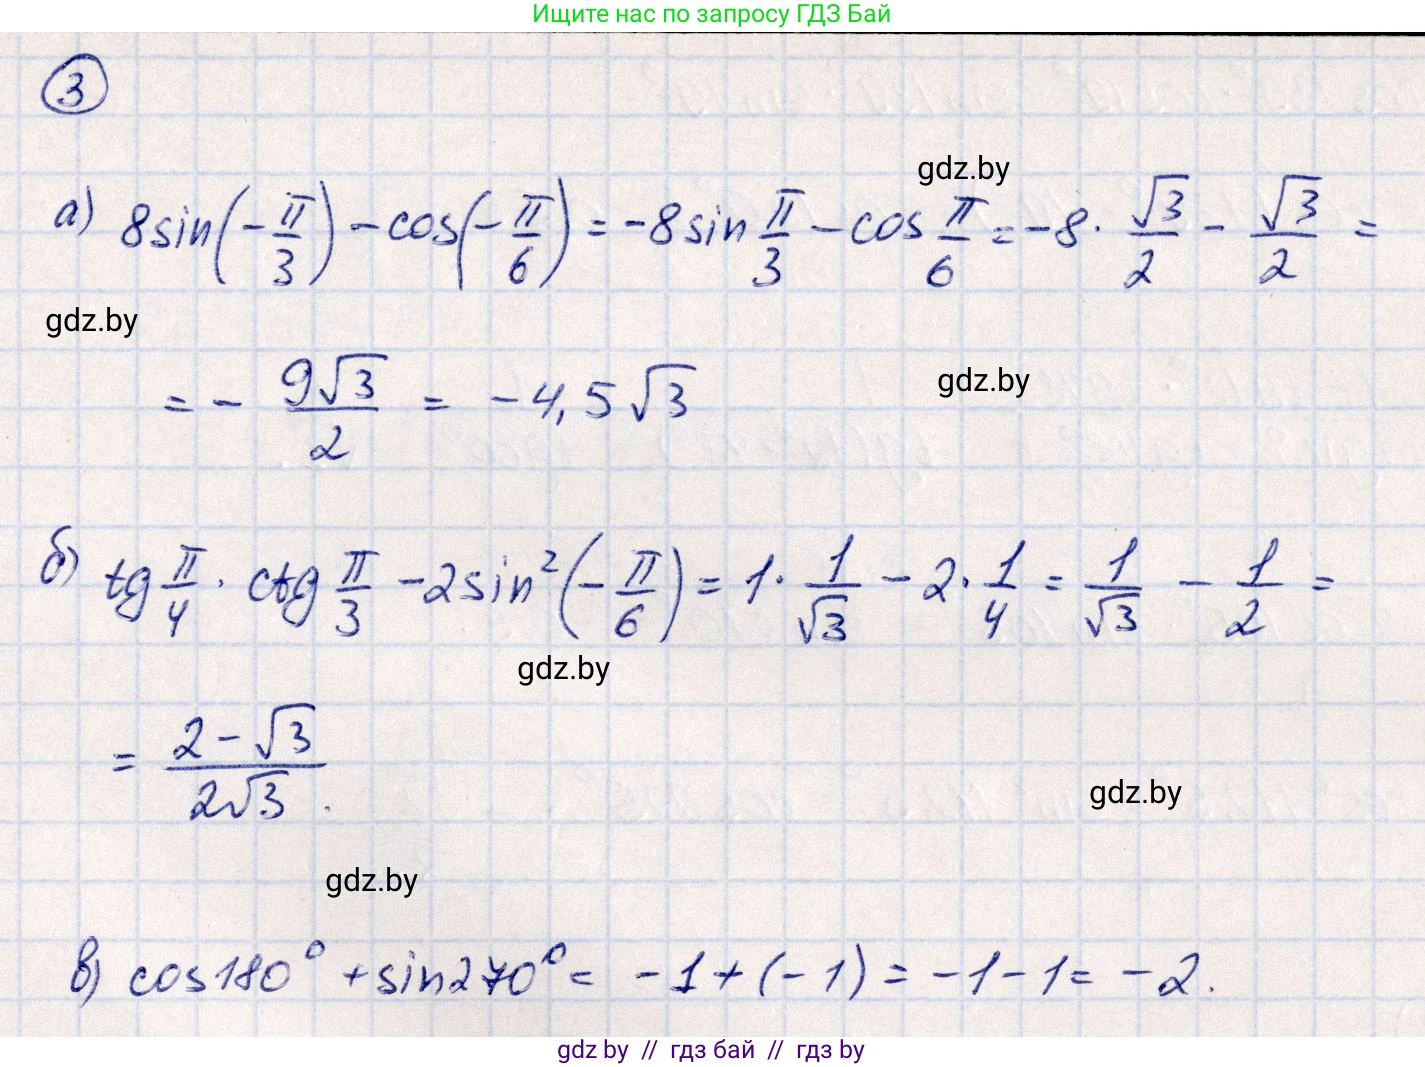 Ищите нас по запросу ГДЗ Бай
3
gdz.by
а) 8sin(-π/3) - cos(-π/6) = -8sin π/3 - cos π/6 = -8 · √3/2 - √3/2 =
gdz.by
= - 9√3/2 = -4,5√3
gdz.by
б) tg π/4 · ctg π/3 - 2sin²(-π/6) = 1 · 1/√3 - 2 · 1/4 = 1/√3 - 1/2 =
gdz.by
= (2 - √3)/(2√3).
gdz.by
gdz.by
в) cos180° + sin270° = -1 + (-1) = -1 - 1 = -2.
gdz by // гдз бай // гдз by